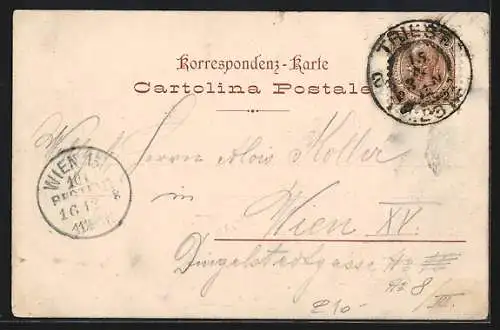 Korrespondenz-Karte
Cartolina Postale
TRIEST
2
WIEN
16
Herrn Alois Koller
in
Wien XV.
Dingelstedtgasse No
No 8/III.